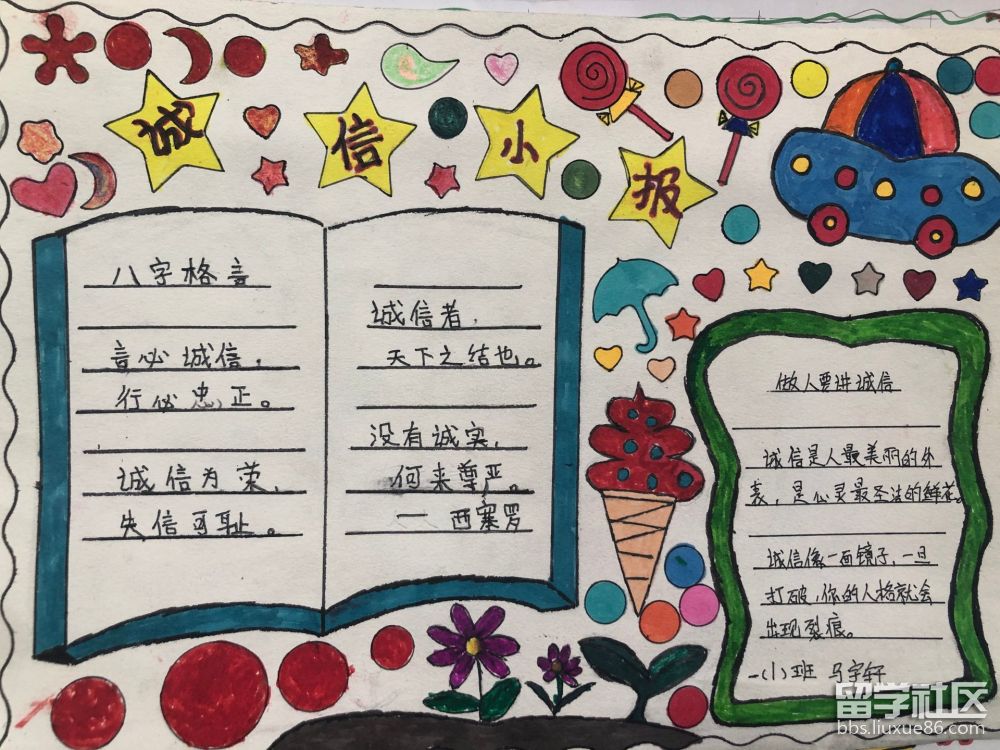 诚信小报
八字格言
言必诚信，
行必忠正。
诚信为荣、
失信可耻。
诚信者，
天下之结也。
没有诚实，
何来尊严。
— 西塞罗
做人要讲诚信
诚信是人最美丽的外
表，是心灵最圣洁的鲜花。
诚信像一面镜子，一旦
打破，你的人格就会
出现裂痕。
一（1）班 马宇轩
留学社区
bbs.liuxue86.com